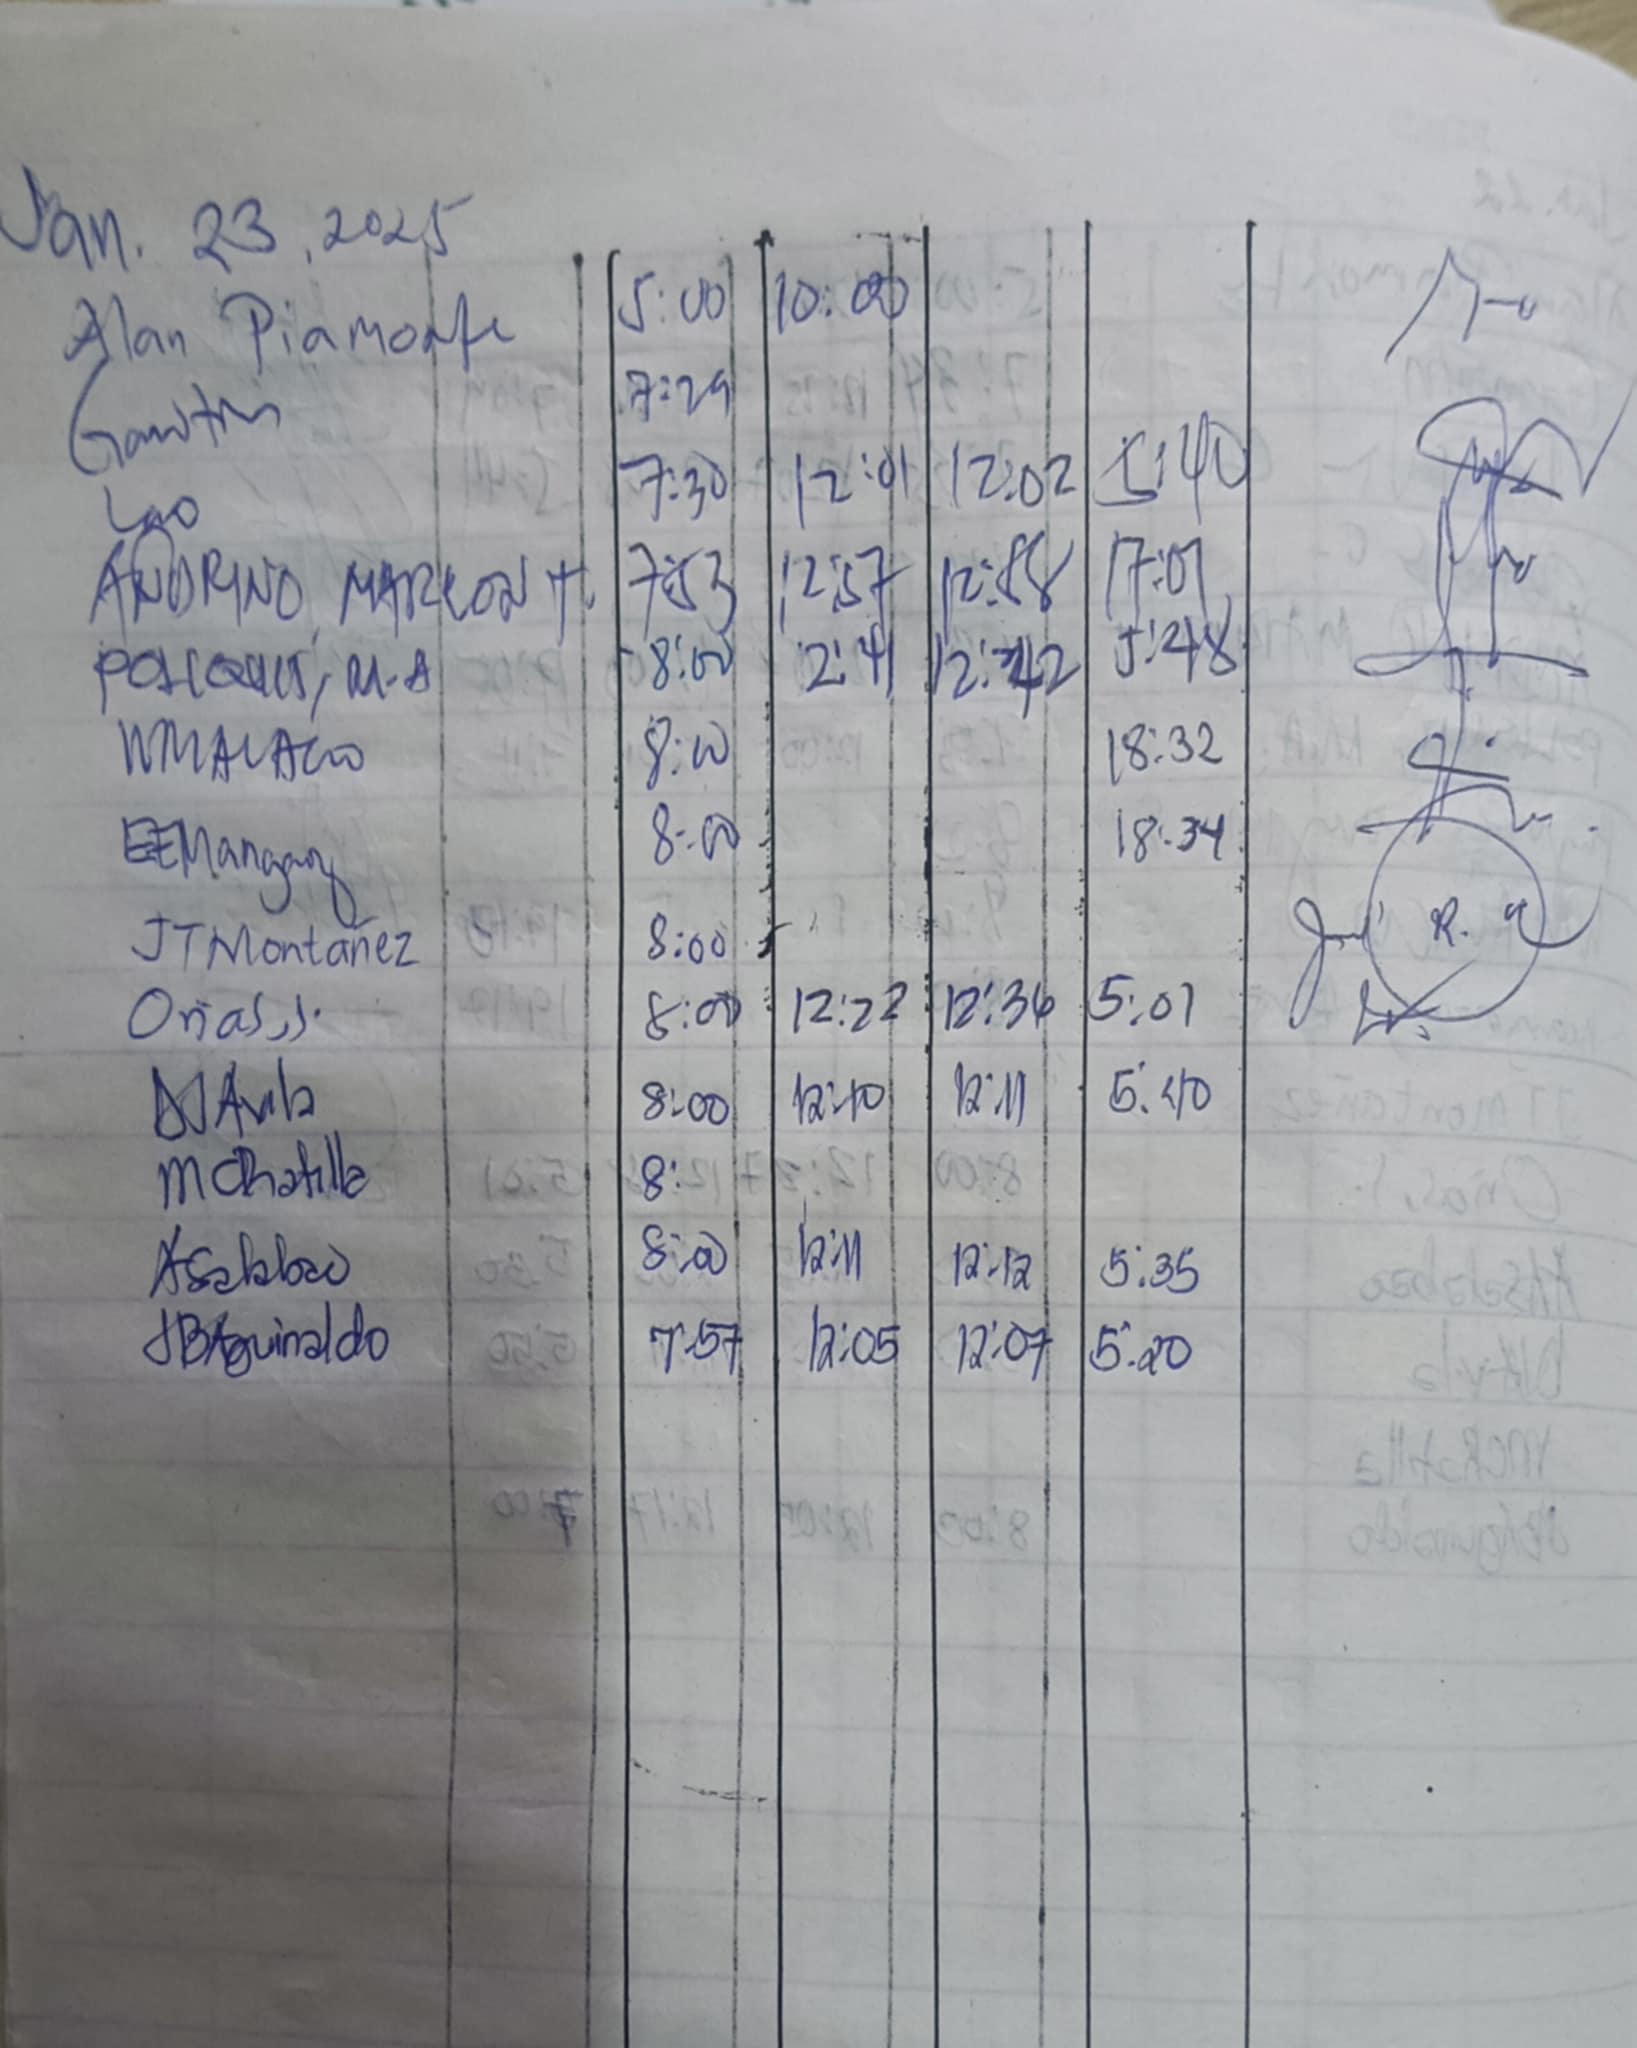 Jan. 23, 2025
Alan Piamonte 5:00 10:00
7:29
Lao 7:30 12:01 12:02 5:40
ANDRINO, MARLON T. 7:53 12:57 12:58 17:01
POLICQUIT, M.A 8:00 12:41 12:42 5:48
8:00 18:32
EEMangany 8:00 18:34
JTMontañez 8:00
Orias, J. 8:00 12:22 12:36 5:01
DJAvila 8:00 12:10 12:11 5:40
MCRatilla 8:
ASalabao 8:00 12:11 12:12 5:35
JBAguinaldo 7:57 12:05 12:07 5:20